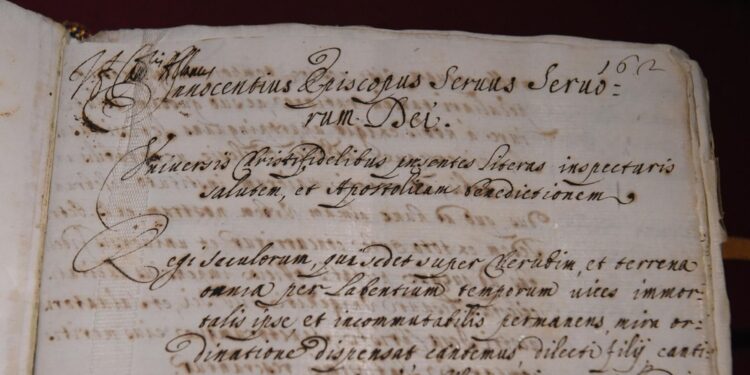 162
Innocentius Episcopus Seruus Seruo-
rum Dei.
Vniuersis Christifidelibus presentes literas inspecturis
salutem, et Apostolicam benedictionem
Regi seculorum, qui sedet super Cherubim, et terrena
omnia per labentium temporum vices immor-
talis ipse, et incommutabilis permanens, mira or-
dinatione dispensat cantemus dilecti filij canti-